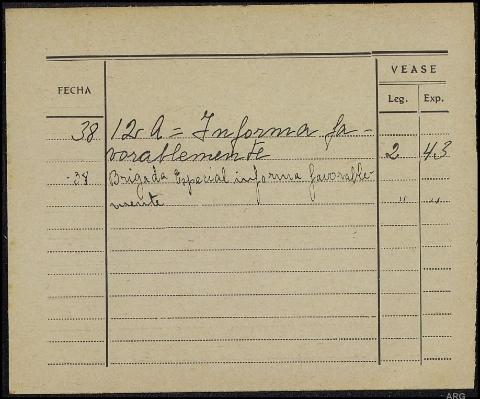 VEASE
FECHA
Leg. Exp.
38 12 A = Informa fa-
vorablemente 2 43
-38 Brigada Especial informa favorable-
mente " "
ARG